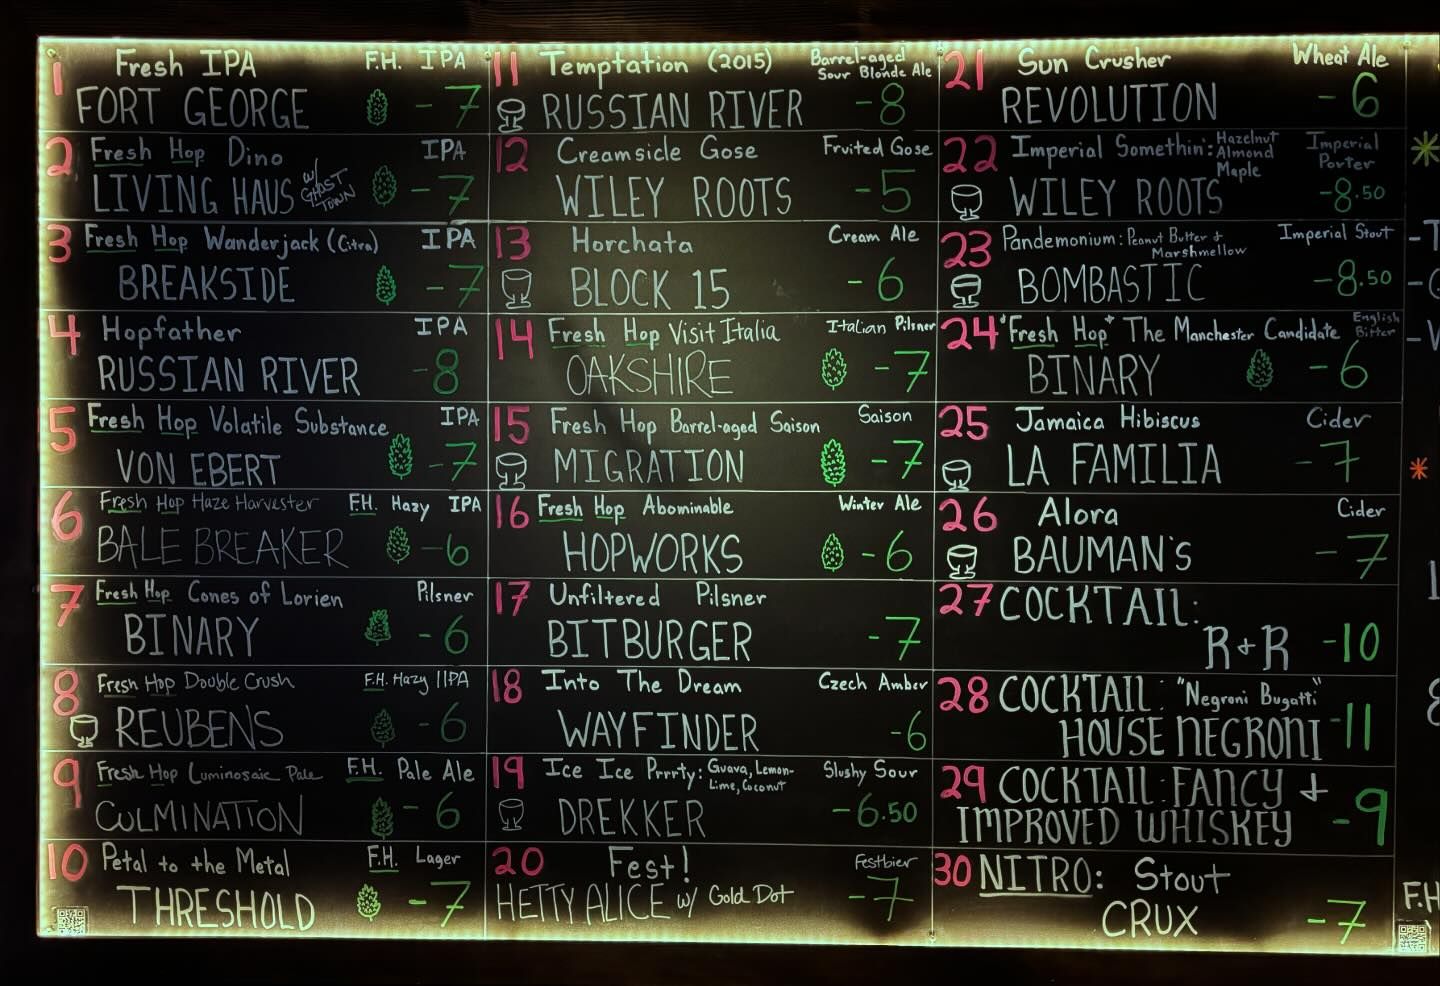 1 Fresh IPA F.H. IPA
FORT GEORGE -7
2 Fresh Hop Dino IPA
LIVING HAUS w/ GHOST TOWN -7
3 Fresh Hop Wanderjack (Citra) IPA
BREAKSIDE -7
4 Hopfather IPA
RUSSIAN RIVER -8
5 Fresh Hop Volatile Substance IPA
VON EBERT -7
6 Fresh Hop Haze Harvester F.H. Hazy IPA
BALE BREAKER -6
7 Fresh Hop Cones of Lorien Pilsner
BINARY -6
8 Fresh Hop Double Crush F.H. Hazy IIPA
REUBENS -6
9 Fresh Hop Luminosaic Pale F.H. Pale Ale
CULMINATION -6
10 Petal to the Metal F.H. Lager
THRESHOLD -7
11 Temptation (2015) Barrel-aged Sour Blonde Ale
RUSSIAN RIVER -8
12 Creamsicle Gose Fruited Gose
WILEY ROOTS -5
13 Horchata Cream Ale
BLOCK 15 -6
14 Fresh Hop Visit Italia Italian Pilsner
OAKSHIRE -7
15 Fresh Hop Barrel-aged Saison Saison
MIGRATION -7
16 Fresh Hop Abominable Winter Ale
HOPWORKS -6
17 Unfiltered Pilsner
BITBURGER -7
18 Into The Dream Czech Amber
WAYFINDER -6
19 Ice Ice Prrrty: Guava, Lemon-Lime, Coconut Slushy Sour
DREKKER -6.50
20 Fest! Festbier
HETTY ALICE w/ Gold Dot -7
21 Sun Crusher Wheat Ale
REVOLUTION -6
22 Imperial Somethin': Hazelnut Almond Maple Imperial Porter
WILEY ROOTS -8.50
23 Pandemonium: Peanut Butter + Marshmellow Imperial Stout
BOMBASTIC -8.50
24 "Fresh Hop" The Manchester Candidate English Bitter
BINARY -6
25 Jamaica Hibiscus Cider
LA FAMILIA -7
26 Alora Cider
BAUMAN'S -7
27 COCKTAIL:
R+R -10
28 COCKTAIL: "Negroni Bugatti"
HOUSE NEGRONI -11
29 COCKTAIL: FANCY +
IMPROVED WHISKEY -9
30 NITRO: Stout
CRUX -7
F.H